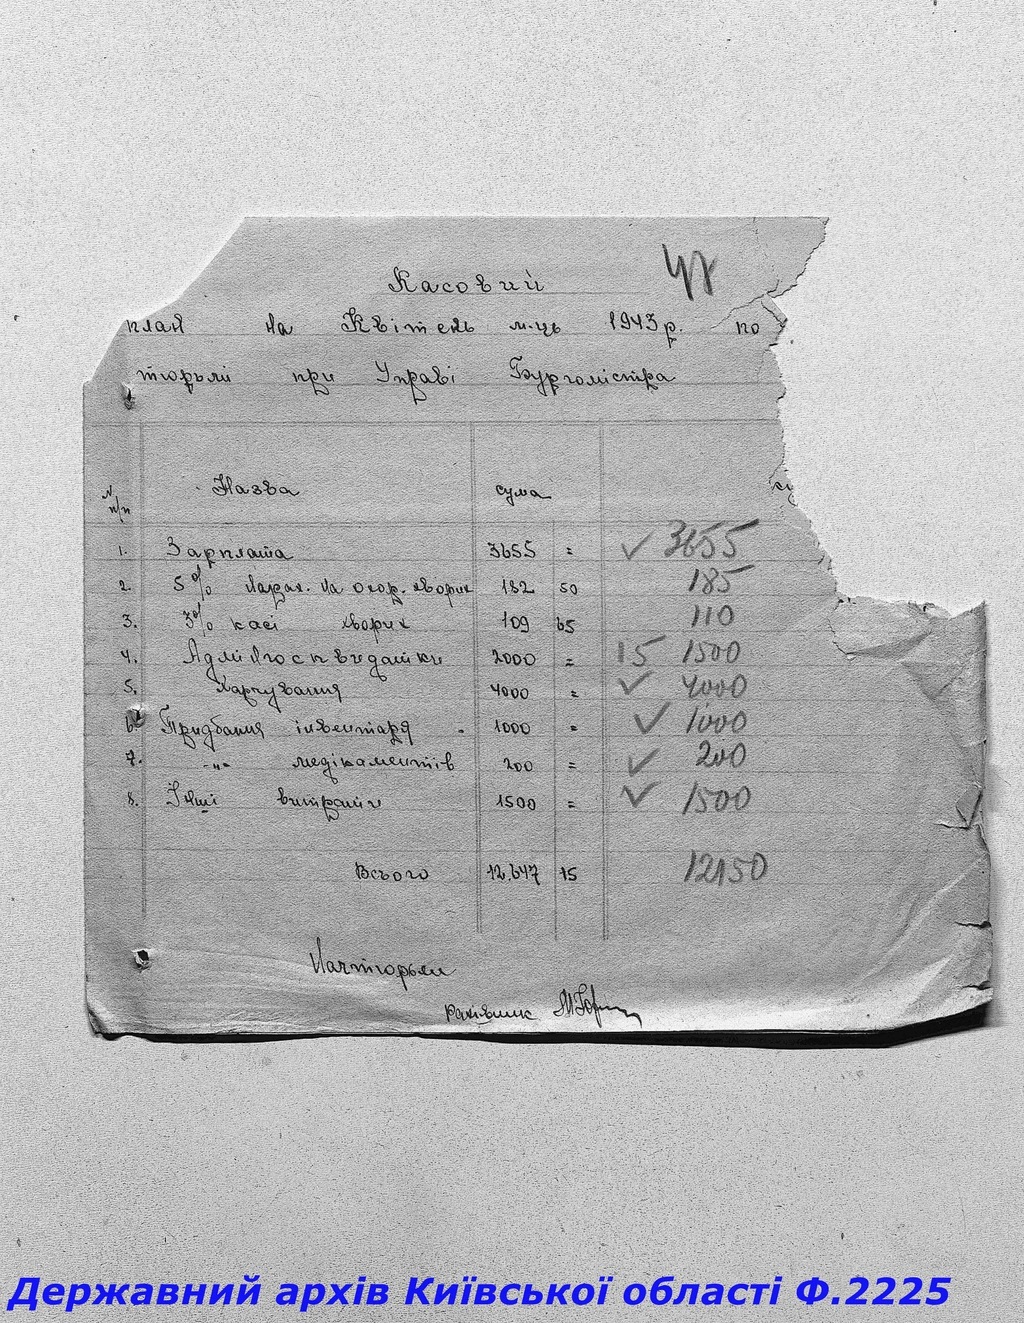 47
Касовий
план на Квітень м-ць 1943 р. по
тюрьмі при Управі Бургомістра
N п/п Назва сума
1. Зарплата 3655 = ✓ 3655
2. 5% нарах. на охор. хворих 182 50 185
3. 3% касі хворих 109 65 110
4. Адмінгоспвидатки 2000 = 15 1500
5. Харчування 4000 = ✓ 4000
6. Придбання інвентаря 1000 = ✓ 1000
7. -"- медікаментів 200 = ✓ 200
8. Інші витрати 1500 = ✓ 1500
Всього 12.647 15 12150
Начтюрьми
рахівник
Державний архів Київської області Ф.2225